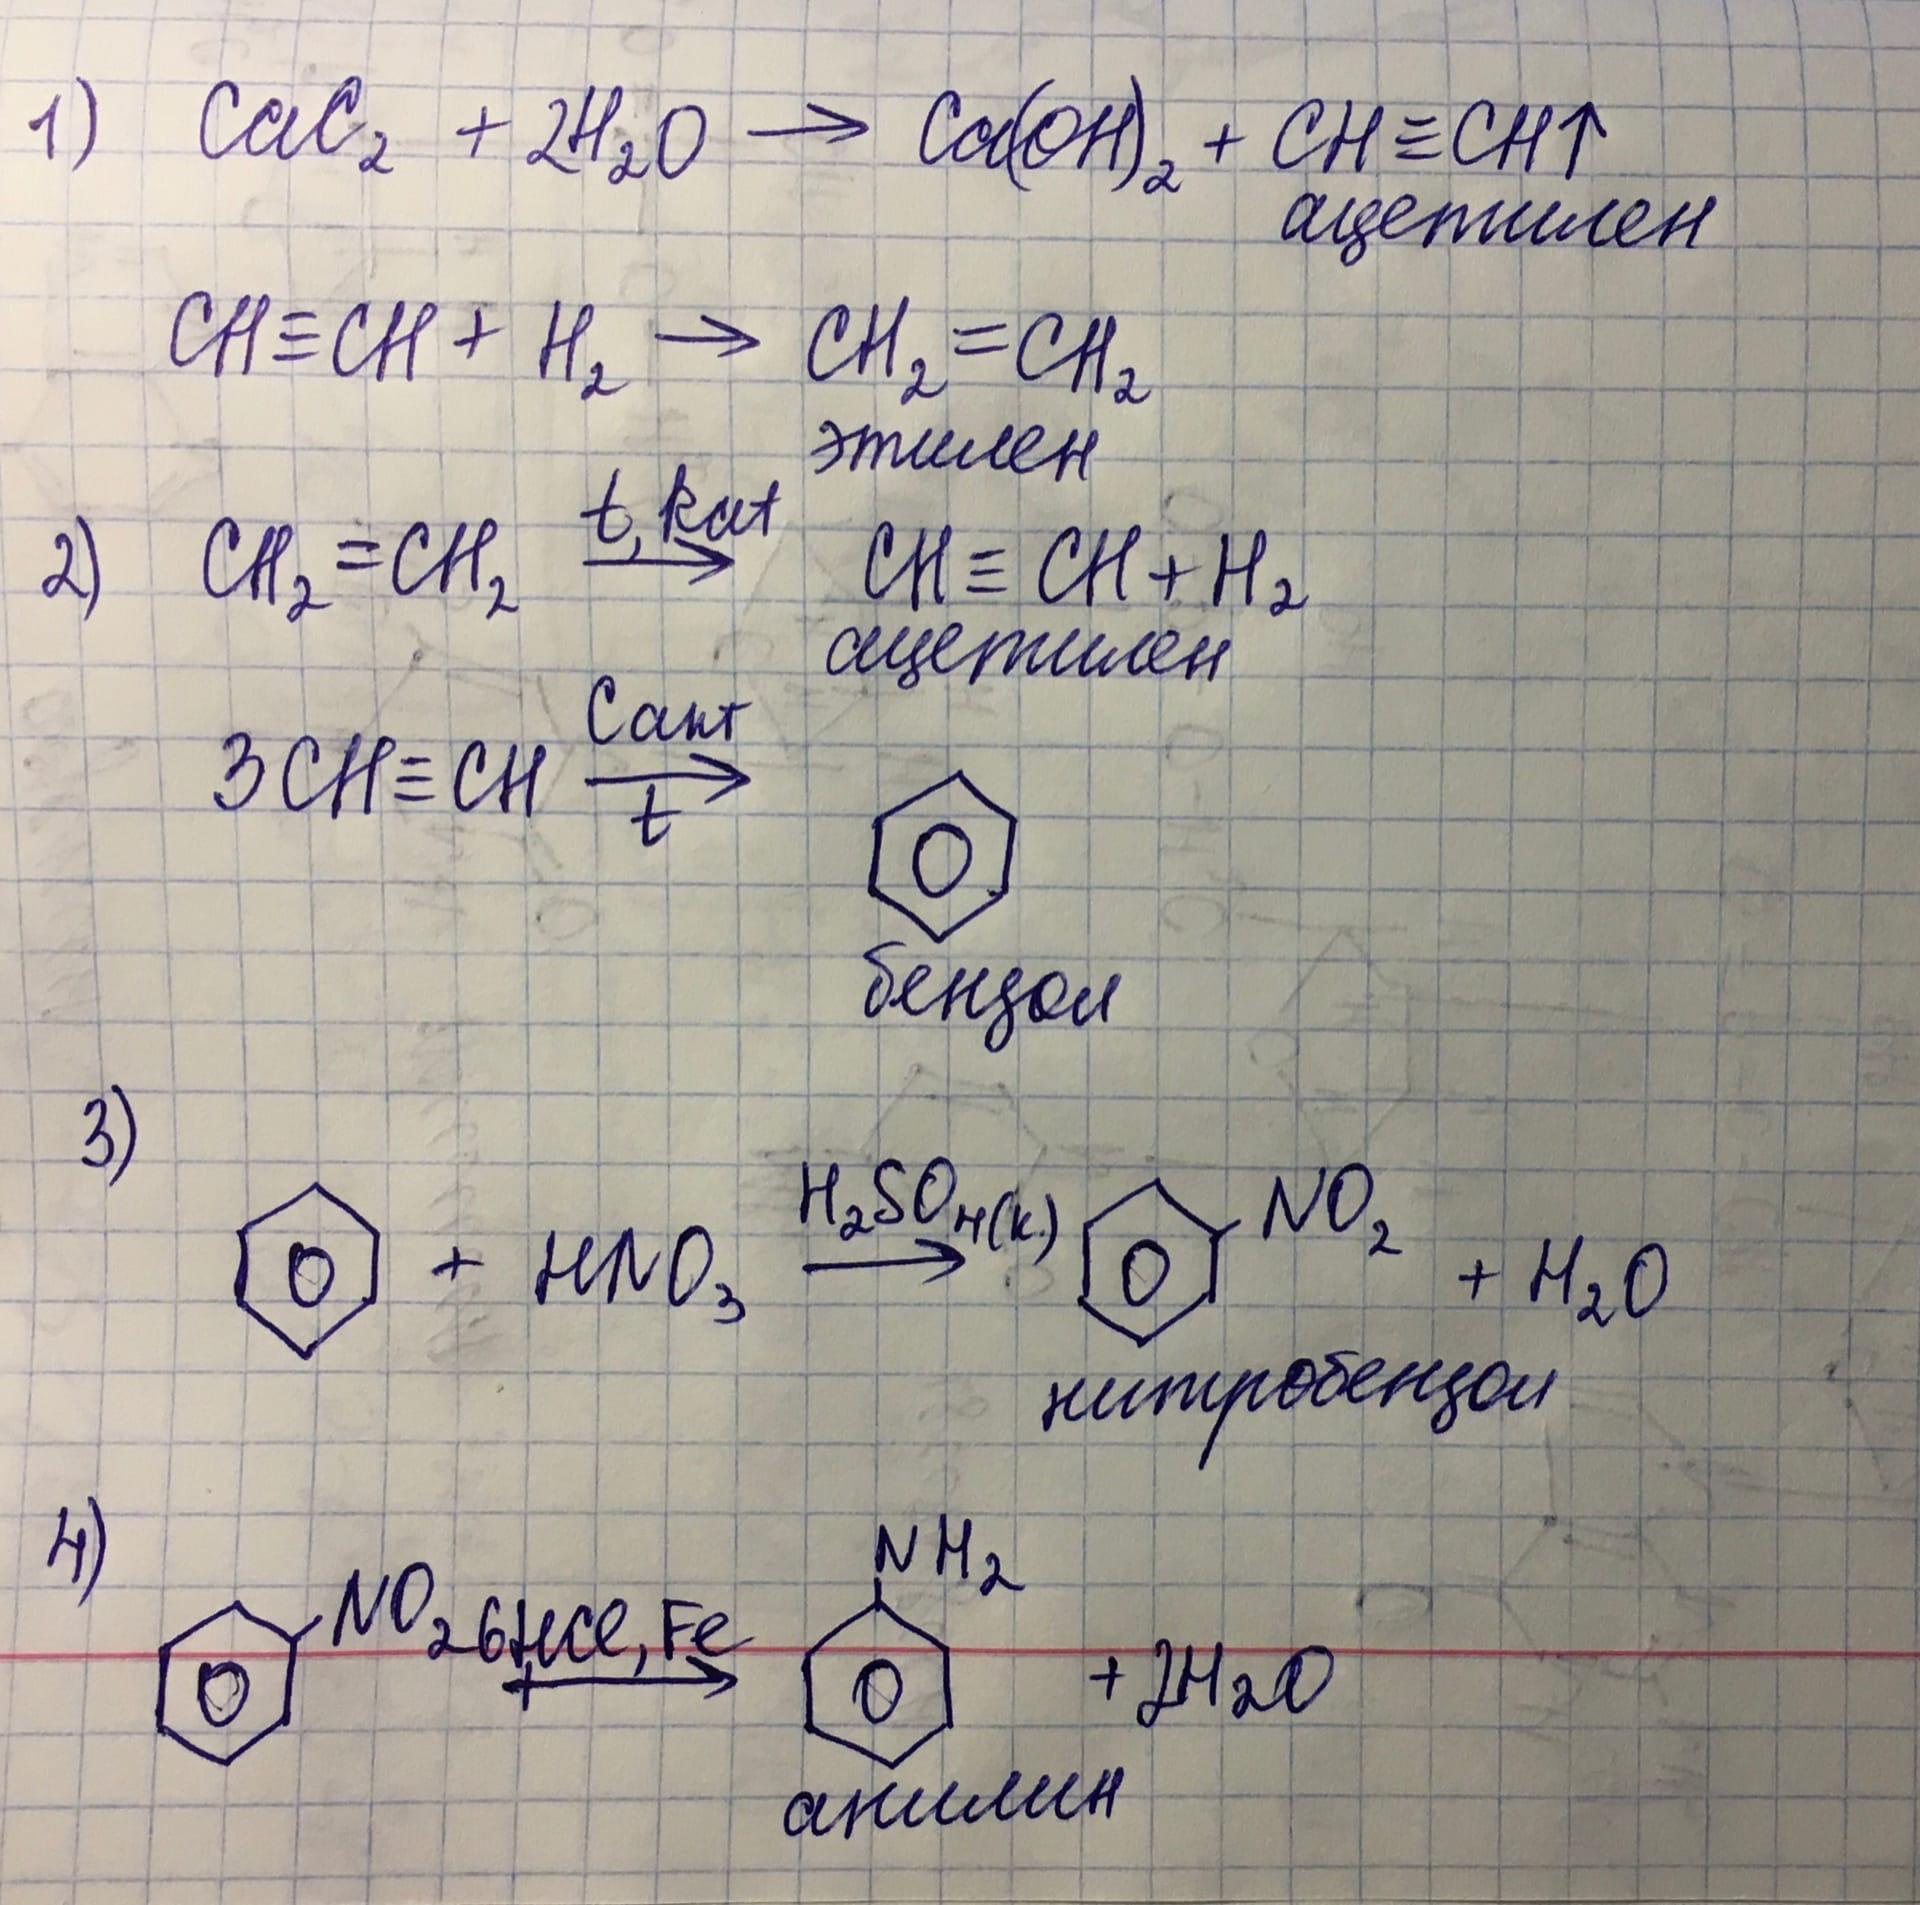 1) CaC₂ + 2H₂O → Ca(OH)₂ + CH≡CH↑
ацетилен
CH≡CH + H₂ → CH₂=CH₂
этилен
t, kat
2) CH₂=CH₂ → CH≡CH + H₂
ацетилен
Cакт
3CH≡CH →
t
бензол
3)
H₂SO₄(к.)
+ HNO₃ → NO₂ + H₂O
нитробензол
4)
NO₂ + 6HCl, Fe → NH₂ + 2H₂O
анилин